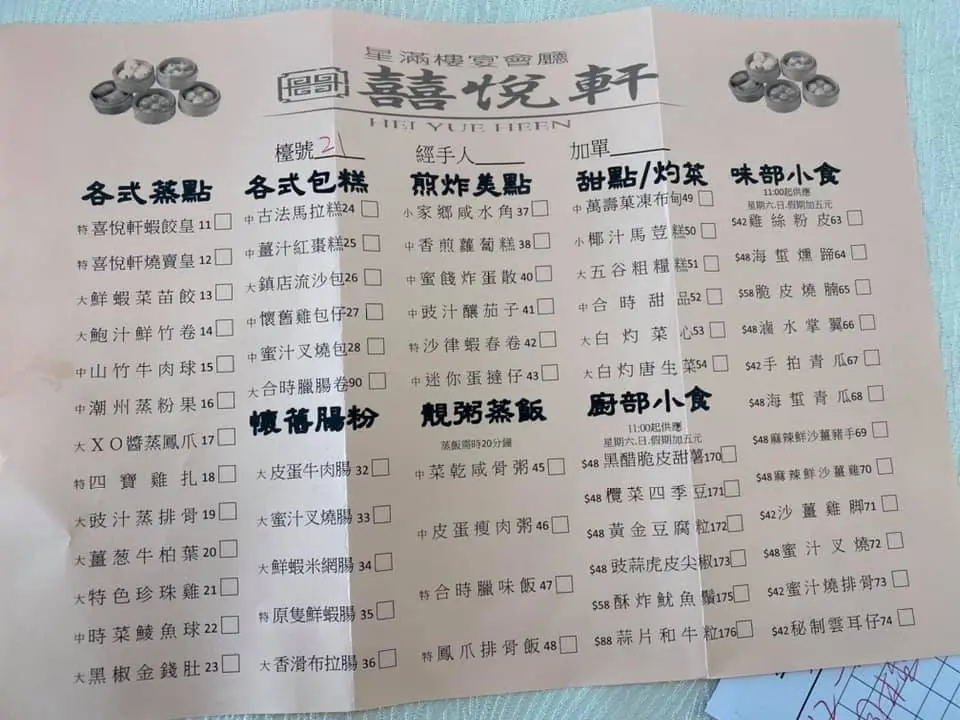 星滿樓宴會廳
囍悅軒
HEI YUE HEEN
檯號 21 經手人 加單
各式蒸點
特 喜悅軒蝦餃皇 11
特 喜悅軒燒賣皇 12
大 鮮蝦菜苗餃 13
大 鮑汁鮮竹卷 14
中 山竹牛肉球 15
中 潮州蒸粉果 16
大 XO醬蒸鳳爪 17
特 四寶雞扎 18
大 豉汁蒸排骨 19
大 薑葱牛柏葉 20
大 特色珍珠雞 21
中 時菜鯪魚球 22
大 黑椒金錢肚 23
各式包糕
中 古法馬拉糕 24
中 薑汁紅棗糕 25
大 鎮店流沙包 26
中 懷舊雞包仔 27
中 蜜汁叉燒包 28
大 合時臘腸卷 90
懷舊腸粉
大 皮蛋牛肉腸 32
大 蜜汁叉燒腸 33
大 鮮蝦米網腸 34
特 原隻鮮蝦腸 35
大 香滑布拉腸 36
煎炸美點
小 家鄉咸水角 37
中 香煎蘿蔔糕 38
中 蜜餞炸蛋散 40
中 豉汁釀茄子 41
特 沙律蝦春卷 42
中 迷你蛋撻仔 43
靚粥蒸飯
蒸飯需時20分鐘
中 菜乾咸骨粥 45
中 皮蛋瘦肉粥 46
特 合時臘味飯 47
特 鳳爪排骨飯 48
甜點/灼菜
中 萬壽菓凍布甸 49
小 椰汁馬荳糕 50
大 五谷粗糧糕 51
中 合時甜品 52
大 白灼菜心 53
大 白灼唐生菜 54
廚部小食
11:00起供應
星期六.日.假期加五元
$48 黑醋脆皮甜薯 170
$48 欖菜四季豆 171
$48 黃金豆腐粒 172
$48 豉蒜虎皮尖椒 173
$58 酥炸魷魚鬚 175
$88 蒜片和牛粒 176
味部小食
11:00起供應
星期六.日.假期加五元
$42 雞絲粉皮 63
$48 海蜇燻蹄 64
$58 脆皮燒腩 65
$48 滷水掌翼 66
$42 手拍青瓜 67
$48 海蜇青瓜 68
$48 麻辣鮮沙薑豬手 69
$48 麻辣鮮沙薑雞 70
$42 沙薑雞脚 71
$48 蜜汁叉燒 72
$42 蜜汁燒排骨 73
$42 秘制雲耳仔 74